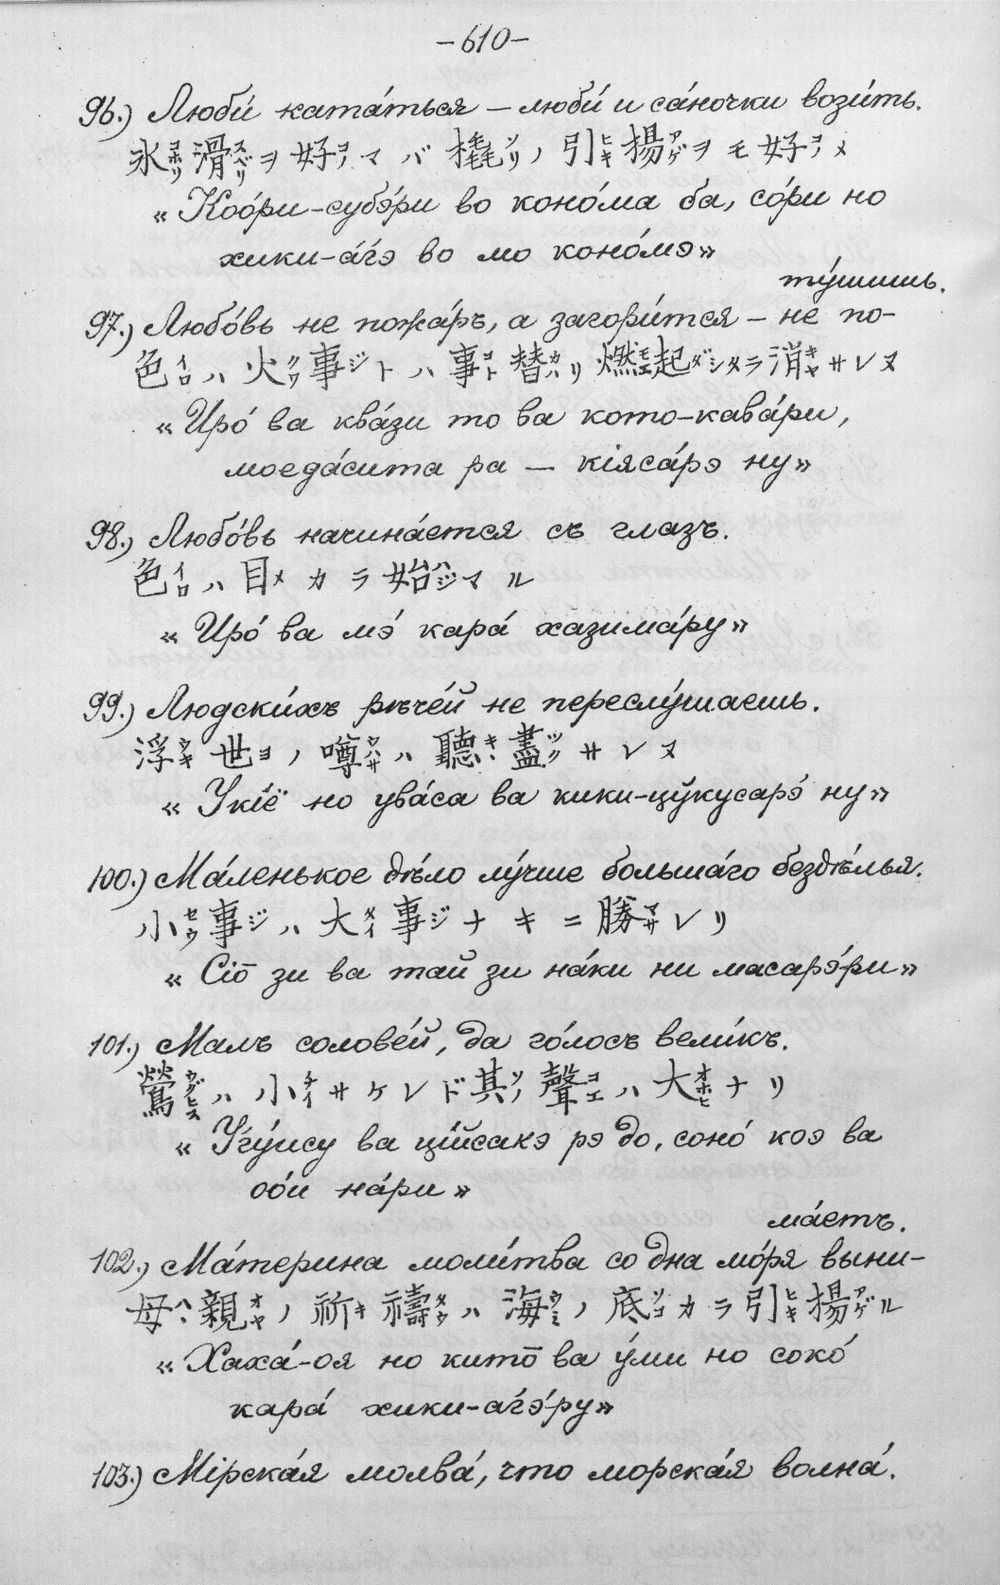 –610–
96.) Люби́ ката́ться – люби́ и са́ночки вози́ть.
氷コホリ滑スベリヲ好コノマバ橇ソリノ引ヒキ揚アゲヲモ好コノメ
«Коо́ри-субэ́ри во коно́ма ба, со́ри но
хики-а́гэ во мо коно́мэ»
ту́шишь.
97.) Любо́вь не пожа́ръ, а загори́тся – не по-
色イロハ火クワ事ジトハ事コト替カハリ燃モエ起ダシタラ消キヤサレヌ
«Иро́ ва ква́зи то ва кото-кава́ри,
моеда́сита ра – кіяса́рэ ну»
98.) Любо́вь начина́ется съ глазъ.
色イロハ目メカラ始ハジマル
«Иро́ ва мэ́ кара́ хазима́ру»
99.) Людски́хъ рѣче́й не переслу́шаешь.
浮ウキ世ヨノ噂ウハサハ聽キヽ盡ツクサレヌ
«Укіё но ува́са ва кики-цӯкусарэ́ ну»
100.) Ма́ленькое дѣло лу́чше больша́го бездѣлья.
小セウ事ジハ大タイ事ジナキニ勝マサレリ
«Сіō зи ва тай зи на́ки ни масарэ́ри»
101.) Малъ солове́й, да го́лосъ вели́къ.
鶯ウグヒスハ小チイサケレド其ソノ聲コエハ大オホヒナリ
«Угу́ису ва ці́йсакэ рэ до, соно́ коэ ва
оо́и на́ри»
ма́етъ.
102.) Ма́терина моли́тва со дна мо́ря выни-
母ハヽ親オヤノ祈キ禱タウハ海ウミノ底ソコカラ引ヒキ揚アゲル
«Хаха́-оя но китō ва у́ми но соко́
кара́ хики-а́гэ́ру»
103.) Мірска́я молва́, что морска́я волна́.